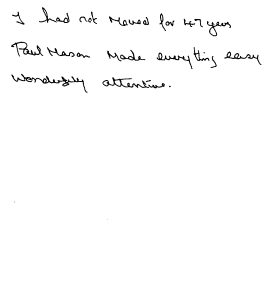 I had not moved for 47 years
Paul Mason made everything easy
Wonderfully attentive.